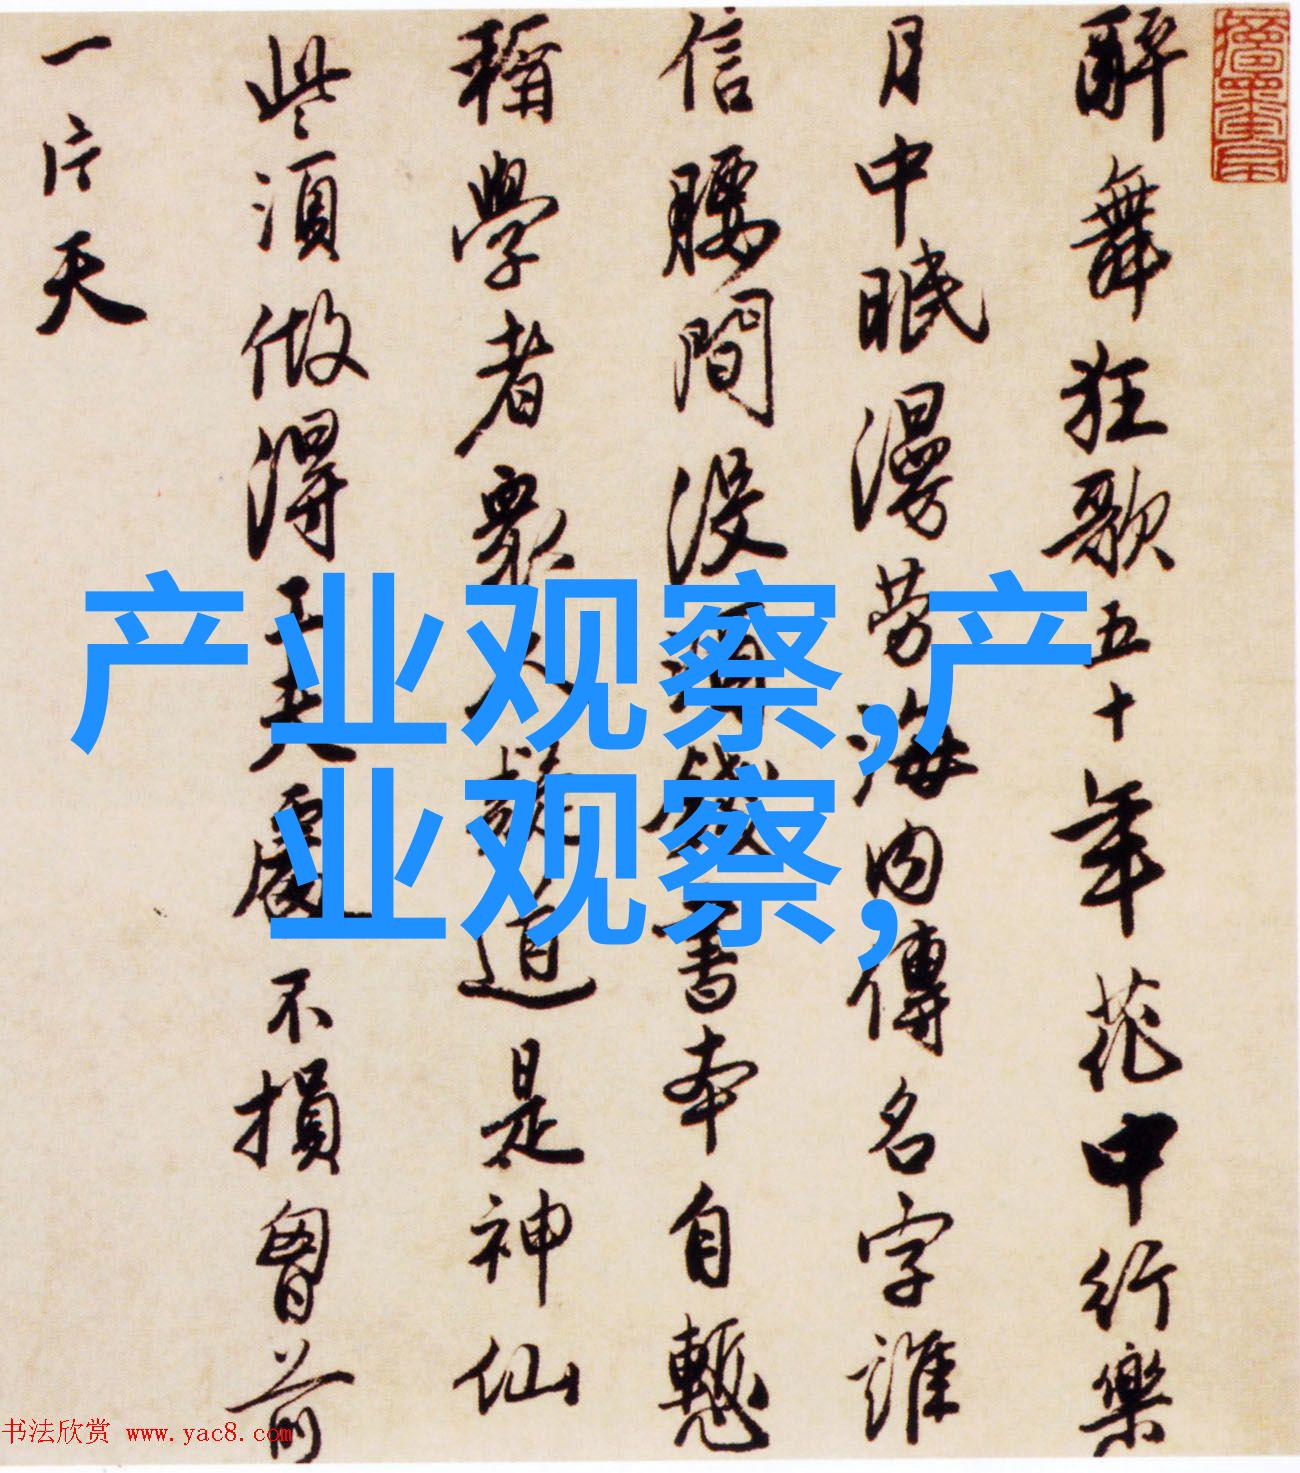 醉舞狂歌五十年花中行樂
月中眠漫勞海内傳名字誰
信腰間没酒錢書本自慙
稱學者衆人疑道是神仙
些須做得工夫處不損胷前
一片天
产业观察,产
业观察,
书法欣赏 www.yac8.com